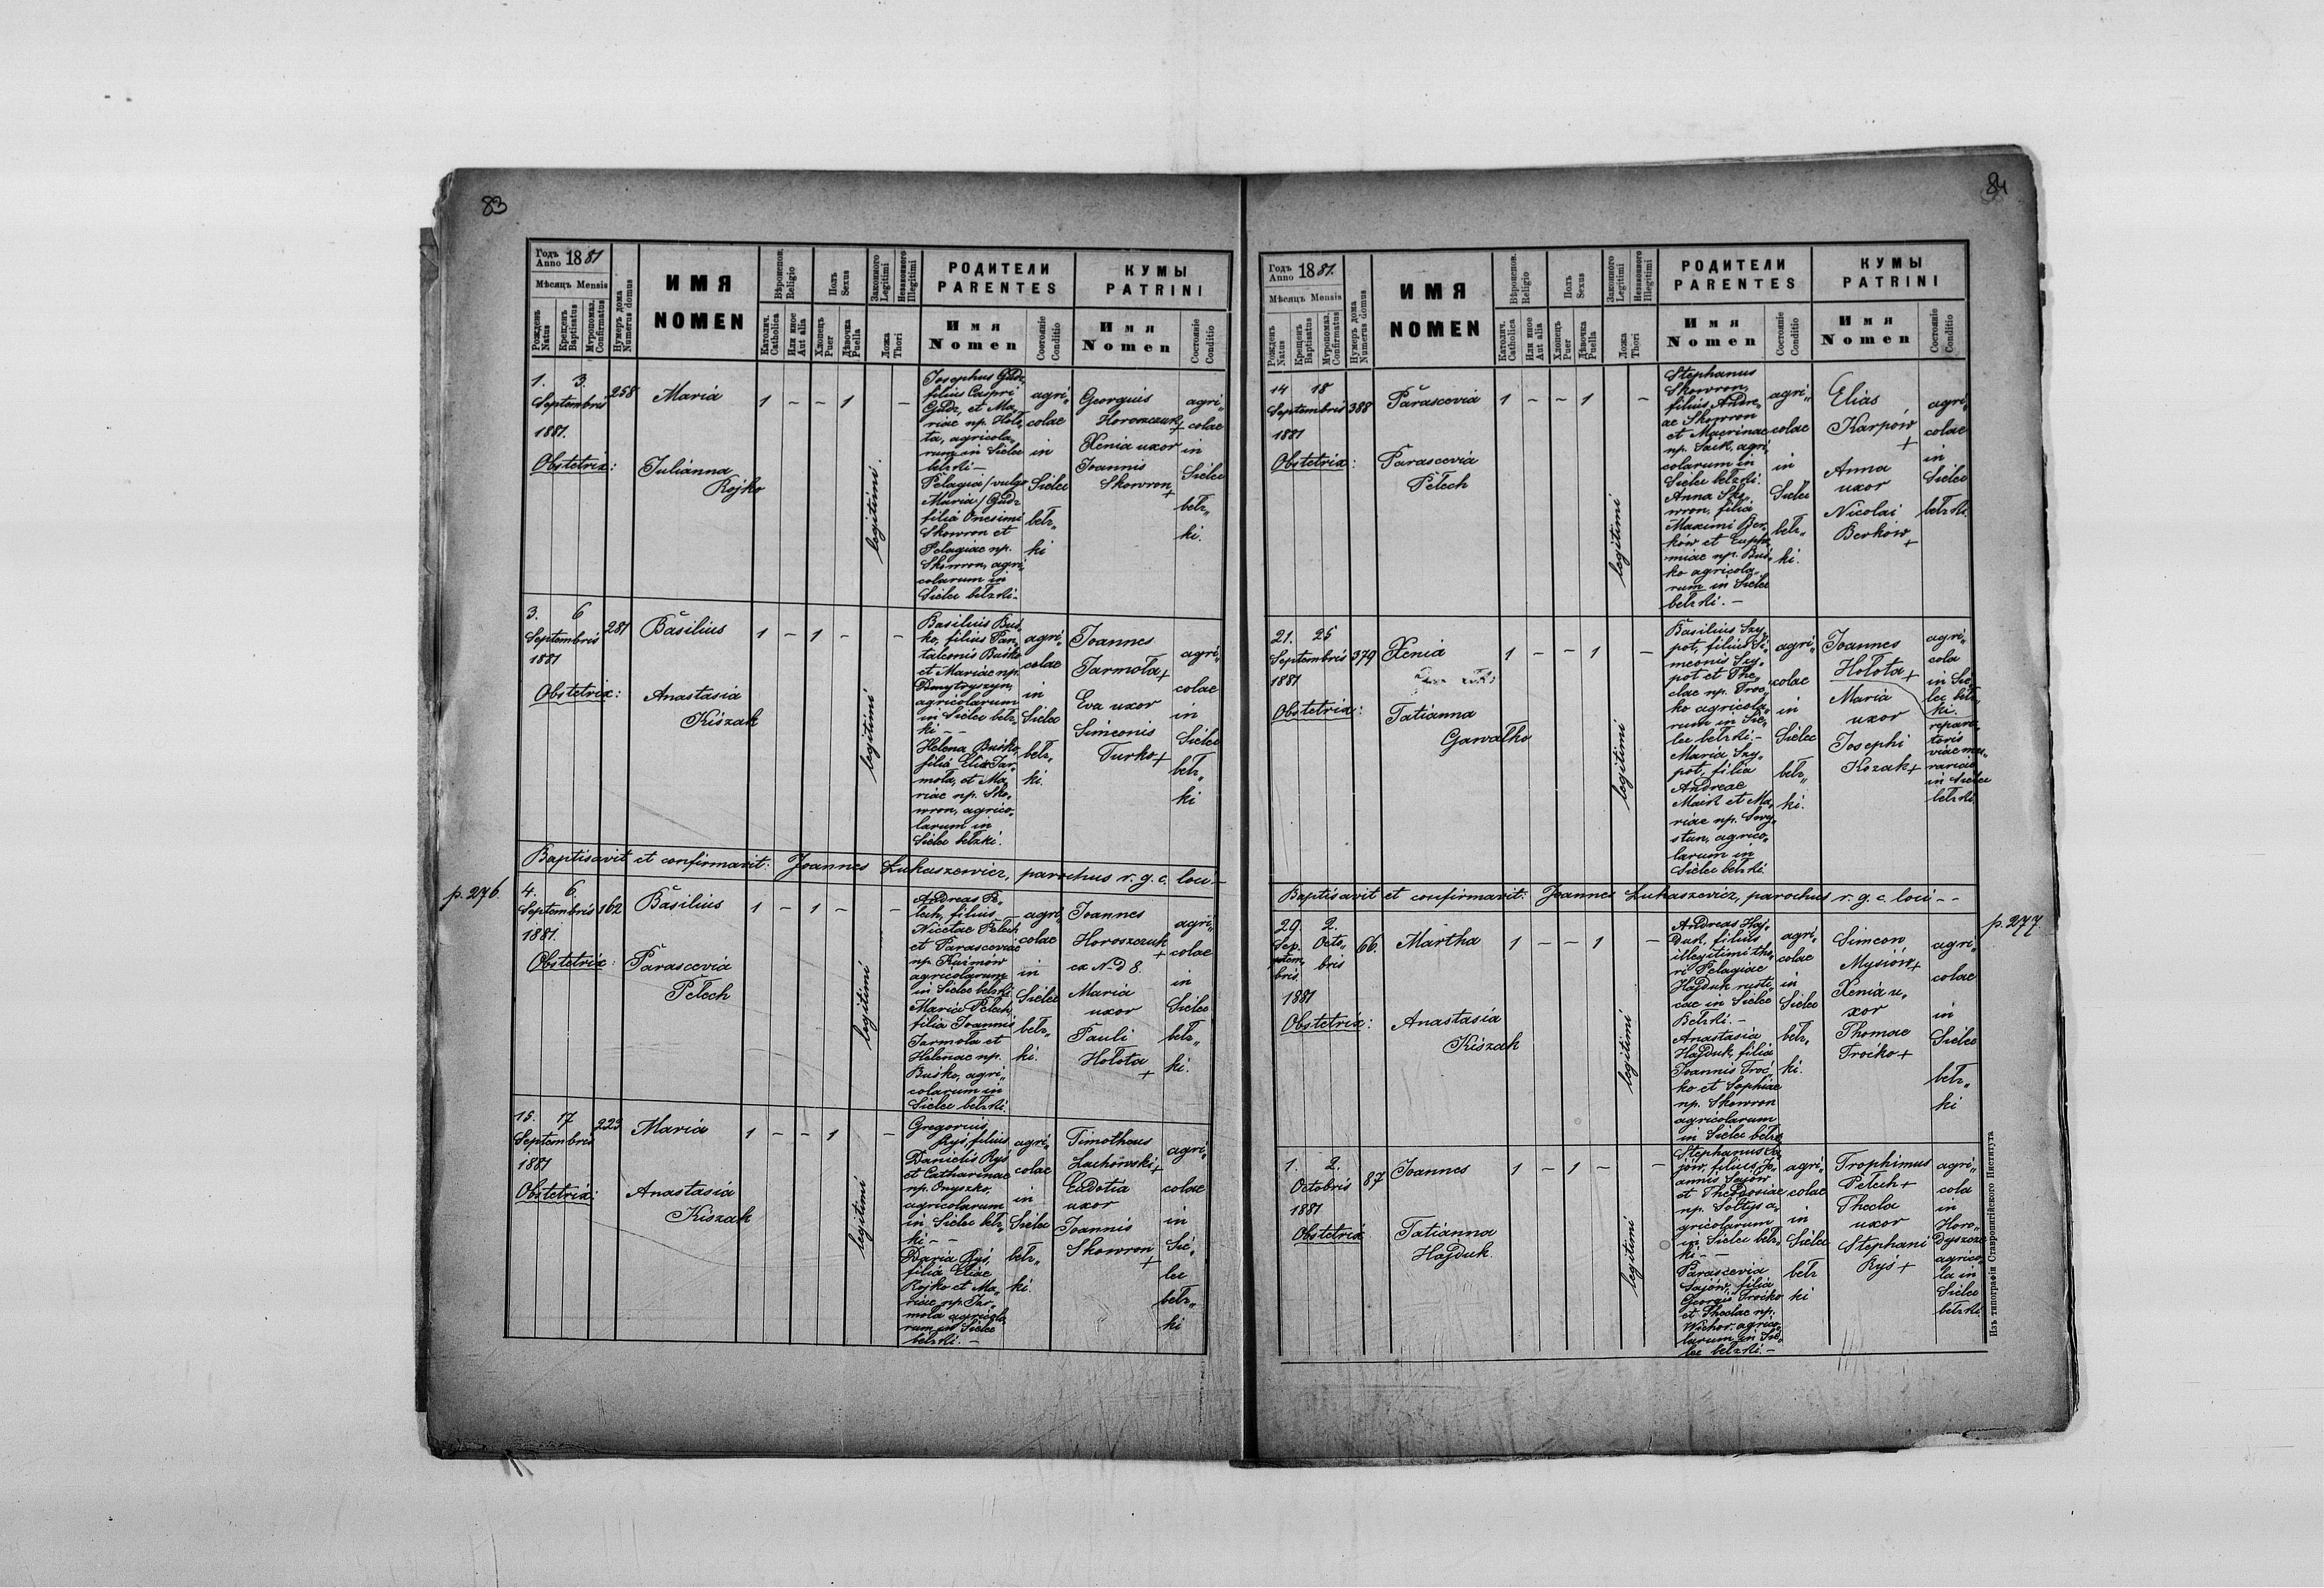 83
Годъ Anno 1881
Мѣсяцъ Mensis
Рожденъ Natus
Крещенъ Baptisatus
Мѵропомаз. Confirmatus
Нумеръ дома Numerus domus
ИМЯ
NOMEN
Вѣроиспов. Religio
Католич. Catholica
Или иное Aut alia
Полъ Sexus
Хлопецъ Puer
Дѣвочка Puella
Законного Legitimi
Незаконного Illegitimi
Ложа Thori
РОДИТЕЛИ
PARENTES
Имя
Nomen
Состояніе Conditio
КУМЫ
PATRINI
Имя
Nomen
Состояніе Conditio
1. 3.
Septembris
1881.
258
Maria
1 - - 1 -
legitimi.
Obstetrix:
Julianna
Rojko
Josephus Gudz,
filius Caspri
Gudz, et Ma„
riae np. Hoło„
ta, agricola„
rum in Sielec
bełzki -
Pelagia /vulgo
Maria/ Gudz
filia Onesimi
Skowron et
Pelagiae np.
Skowron, agri„
colarum in
Sielec bełzki -
agri„
colae
in
Sielec
bełz„
ki
Georgius
Horoszczuk +
Xenia uxor
Joannis
Skowron +
agri„
colae
in
Sielec
bełz„
ki.
3. 6
Septembris
1881
281
Basilius
1 - 1 - -
legitimi
Obstetrix:
Anastasia
Kiszak
Basilius Buś„
ko, filius Pan„
taleonis Buśko
et Mariae np.
Dmytryszyn,
agricolarum
in Sielec bełz„
ki - -
Helena Buśko,
filia Eliae Jar„
moła, et Ma„
riae np. Sko„
wron, agrico„
larum in
Sielec bełzki.
agri„
colae
in
Sielec
bełz„
ki.
Joannes
Jarmoła +
Eva uxor
Simeonis
Turko +
agri„
colae
in
Sielec
bełz„
ki
Baptisavit et confirmavit: Joannes Łukaszewicz, parochus r. g. c. loci -
p. 276.
4. 6
Septembris
1881.
162
Basilius
1 - 1 - -
legitimi
Obstetrix:
Parascevia
Pełech
Andreas Pe„
łech, filius
Nicetae Pełech
et Parasceviae
np. Kuśmów
agricolarum
in Sielec bełzki
Maria Pełech,
filia Joannis
Jarmoła et
Helenae np.
Buśko, agri„
colarum in
Sielec bełzki.
agri„
colae
in
Sielec
bełz„
ki.
Joannes
Horoszczuk +
ex N-o 8.
Maria
uxor
Pauli
Hołota +
agri„
colae
in
Sielec
bełz„
ki.
15. 17
Septembris
1881
223
Maria
1 - - 1 -
legitimi
Obstetrix:
Anastasia
Kiszak
Gregorius
Ryś, filius
Danielis Ryś
et Catharinae
np. Onyszko,
agricolarum
in Sielec bełz„
ki - -
Daria Ryś,
filia Eliae
Rojko et Ma„
riae np. Jar„
moła agricola„
rum in Sielec
bełzki. -
agri„
colae
in
Sielec
bełz„
ki.
Timotheus
Lachowski +
Eudotia
uxor
Joannis
Skowron +
agri„
colae
in
Sie„
lec
bełz„
ki
84
Годъ Anno 1881.
Мѣсяцъ Mensis
Рожденъ Natus
Крещенъ Baptisatus
Мѵропомаз. Confirmatus
Нумеръ дома Numerus domus
ИМЯ
NOMEN
Вѣроиспов. Religio
Католич. Catholica
Или иное Aut alia
Полъ Sexus
Хлопецъ Puer
Дѣвочка Puella
Законного Legitimi
Незаконного Illegitimi
Ложа Thori
РОДИТЕЛИ
PARENTES
Имя
Nomen
Состояніе Conditio
КУМЫ
PATRINI
Имя
Nomen
Состояніе Conditio
14 18
Septembris
1881
388
Parascevia
1 - - 1 -
legitimi
Obstetrix:
Parascevia
Pełech
Stephanus
Skowron,
filius Andre„
ae Skowron
et Macrinae
np. Sack, agri„
colarum in
Sielec bełzki.
Anna Sko„
wron, filia
Maximi Ber„
ków et Euphe„
miae np. Buś„
ko agricola„
rum in Sielec
bełzki. -
agri„
colae
in
Sielec
bełz„
ki.
Elias
Karpów +
Anna
uxor
Nicolai
Berków +
agri„
colae
in
Sielec
bełzki.
21. 25
Septembris
1881
379
Xenia
1 - - 1 -
legitimi
Obstetrix:
Tatianna
Gawałko
Basilius Szy„
pot, filius Si„
meonis Szy„
pot et The„
clae np. Troć„
ko agricola„
rum in Sie„
lec bełzki. -
Maria Szy„
pot, filia
Andreae
Maik et Ma„
riae np. Swy„
stun, agrico„
larum in
Sielec bełzki.
agri„
colae
in
Sielec
bełz„
ki.
Joannes
Hołota +
Maria
uxor
Josephi
Kozak +
agri„
cola
in Sie„
lec bełz„
ki.
repara„
toris
viae mu„
rariae
in Sielec
bełzki
Baptisavit et confirmavit: Joannes Łukaszewicz, parochus r. g. c. loci - -
p. 277.
29 2.
Sep„ Octo„
ptem„ bris
bris
1881
66.
Martha
1 - - 1 -
legitimi
Obstetrix:
Anastasia
Kiszak
Andreas Haj„
duk, filius
illegitimi tho„
ri Pelagiae
Hajduk rusti„
cae in Sielec
Bełzki. -
Anastasia
Hajduk, filia
Joannis Troć„
ko et Sophiae
np. Skowron
agricolarum
in Sielec bełzki
agri„
colae
in
Sielec
bełz„
ki.
Simeon
Mysiów +
Xenia u„
xor
Thomae
Troćko +
agri„
colae
in
Sielec
bełz„
ki
1. 2.
Octobris
1881
87
Joannes
1 - 1 - -
legitimi
Obstetrix
Tatianna
Hajduk.
Stephanus Sa„
jów, filius Jo„
annis Sajów
et Theodosiae
np. Sołtys a„
gricolarum
in Sielec bełz„
ki - -
Parascevia
Sajów, filia
Georgii Troćko
et Theclae np.
Wichor, agrico„
larum in Sie„
lec bełzki. -
agri„
colae
in
Sielec
bełz
ki
Trophimus
Pełech +
Thecla
uxor
Stephani
Ryś +
agri„
cola
in
Horo„
dyszcze
agrico„
la in
Sielec
bełzki
Изъ типографіи Ставропигійского Института